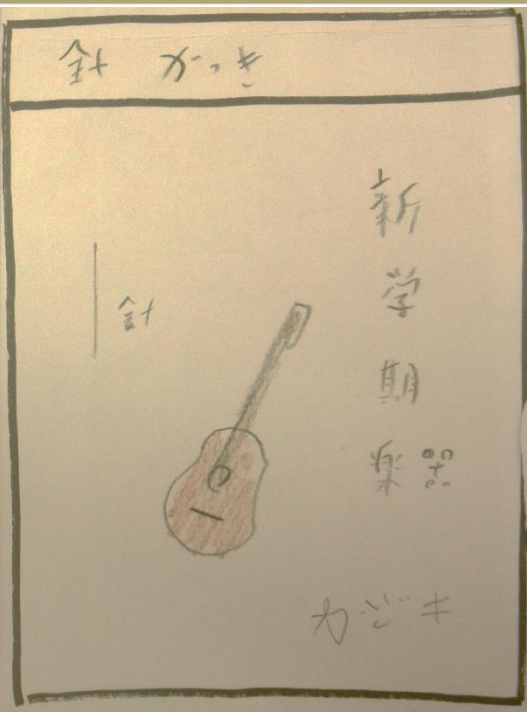 針 がっき
新学期
楽器
針
カジキ